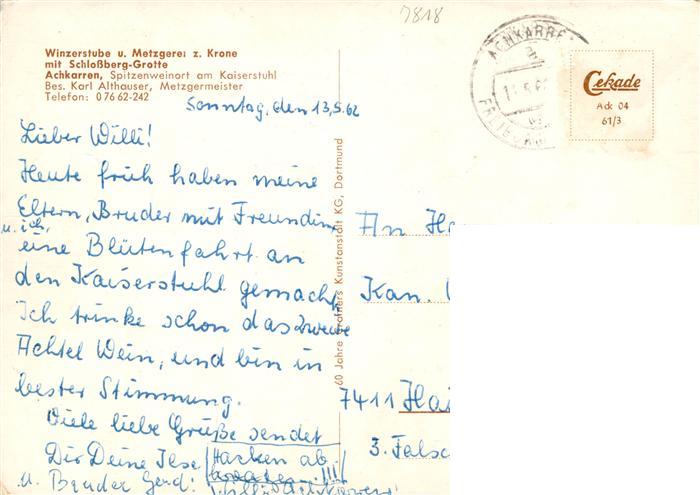 7818
Winzerstube u. Metzgerei z. Krone
mit Schloßberg-Grotte
Achkarren, Spitzenweinort am Kaiserstuhl
Bes. Karl Althauser, Metzgermeister
Telefon: 0 76 62-242
ACHKARREN
Cekade
Ack 04
61/3
Sonntag, den 13.5.62
Lieber Willi!
Heute früh haben meine
Eltern, Bruder mit Freundin,
u. ich, eine Blütenfahrt an
den Kaiserstuhl gemacht.
Ich trinke schon das zweite
Achtel Wein, und bin in
bester Stimmung.
Viele liebe Grüße sendet
Dir Deine Ilse
u. Bruder Gerd!
Hacken ab
!!!
60 Jahre Krathers Kunstanstalt KG, Dortmund
An
Kan.
7411
3.